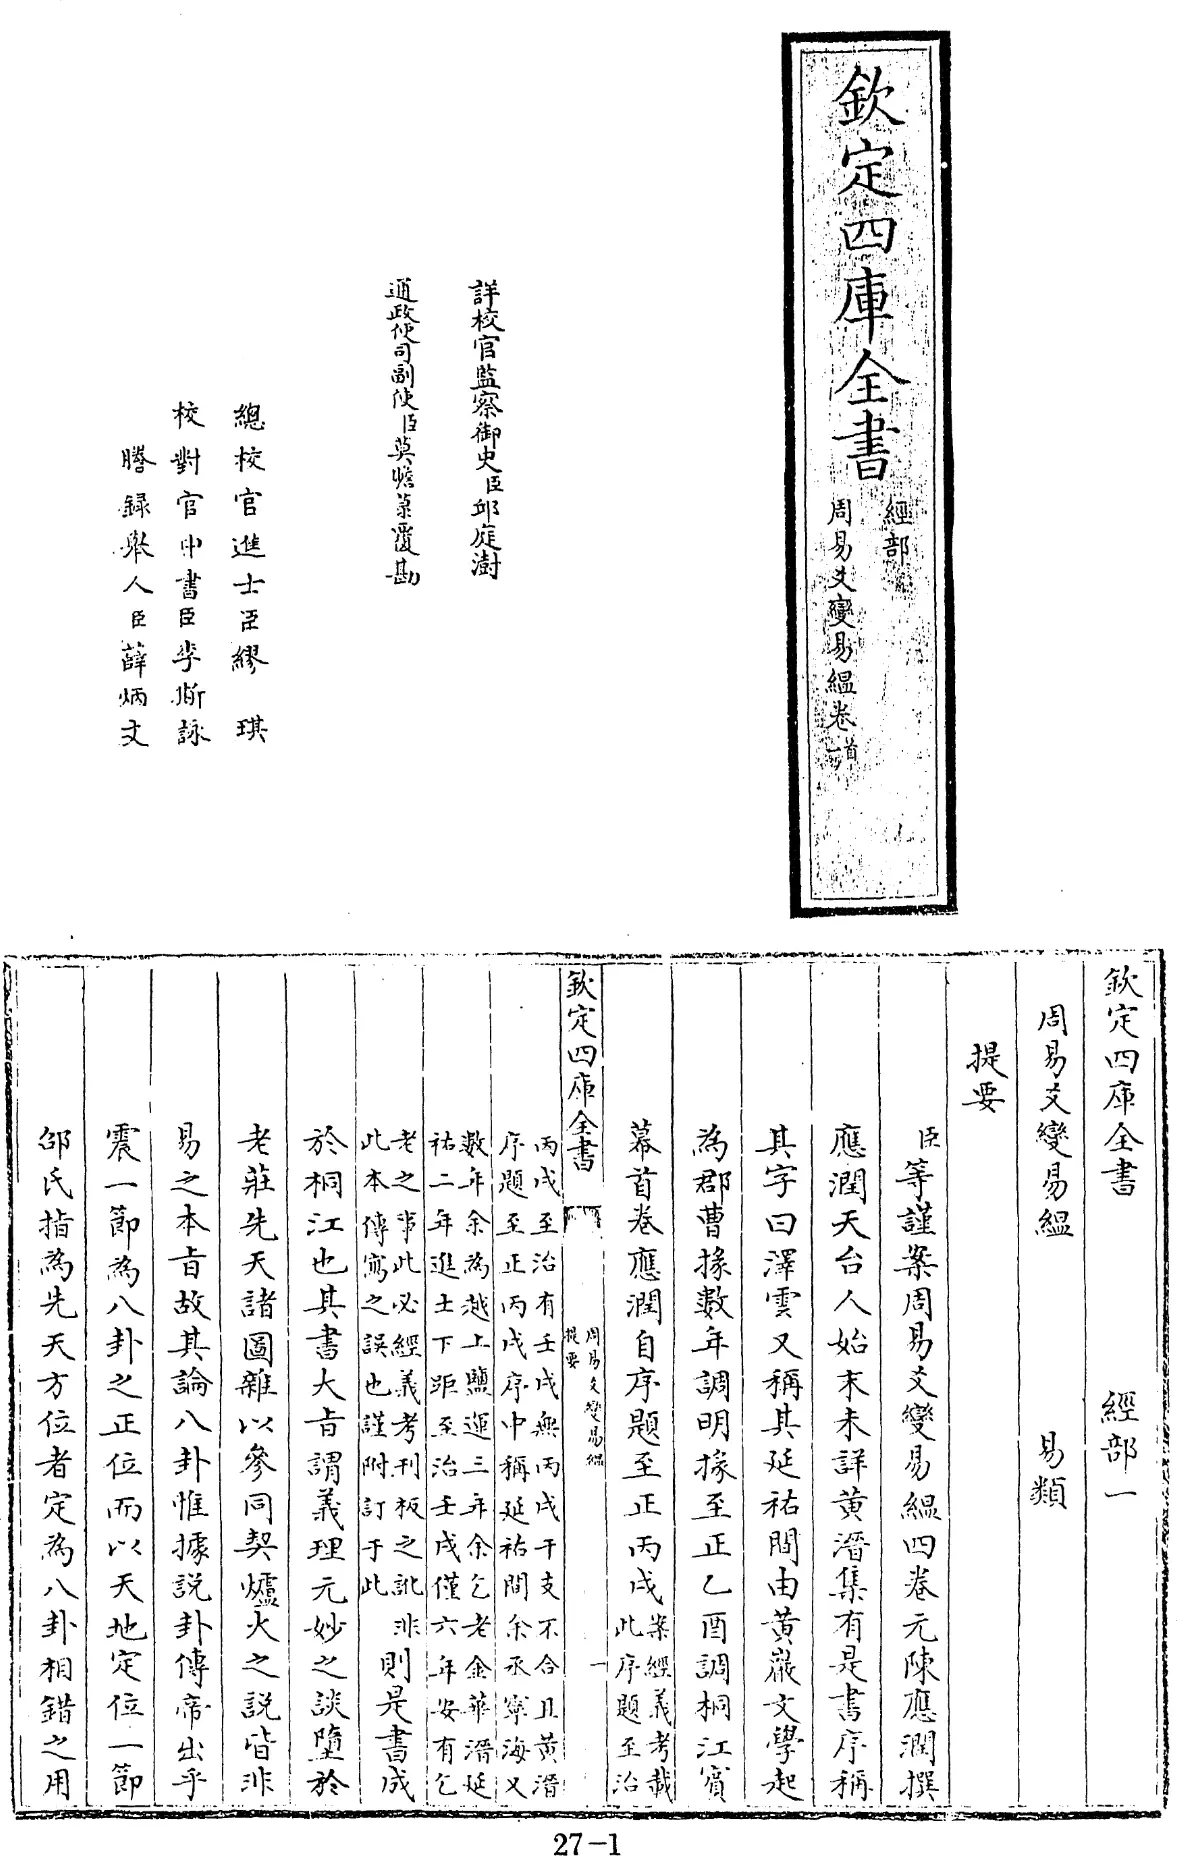 欽定四庫全書
經部
周易爻變易縕卷首一
詳校官監察御史臣邱庭澍
通政使司副使臣莫瞻菉覆勘
總校官進士臣繆琪
校對官中書臣李斯詠
謄錄舉人臣薛炳文
欽定四庫全書 經部一
周易爻變易縕 易類
提要
臣等謹案周易爻變易縕四卷元陳應潤撰
應潤天台人始末未詳黃溍集有是書序稱
其字曰澤雲又稱其延祐間由黃巖文學起
為郡曹掾數年調明掾至正乙酉調桐江賓
幕首卷應潤自序題至正丙戌案經義考載
此序題至治
欽定四庫全書
周易爻變易縕
提要
一
丙戌至治有壬戌無丙戌干支不合且黃溍
序題至正丙戌序中稱延祐間余丞寧海又
數年余為越上鹽運三年余乞老金華溍延
祐二年進士下距至治壬戌僅六年安有乞
老之事此必經義考刊板之訛非
此本傳寫之誤也謹附訂于此
則是書成
於桐江也其書大旨謂義理元妙之談墮於
老莊先天諸圖雜以參同契爐火之說皆非
易之本旨故其論八卦惟據說卦傳帝出乎
震一節為八卦之正位而以天地定位一節
邵氏指為先天方位者定為八卦相錯之用
27-1